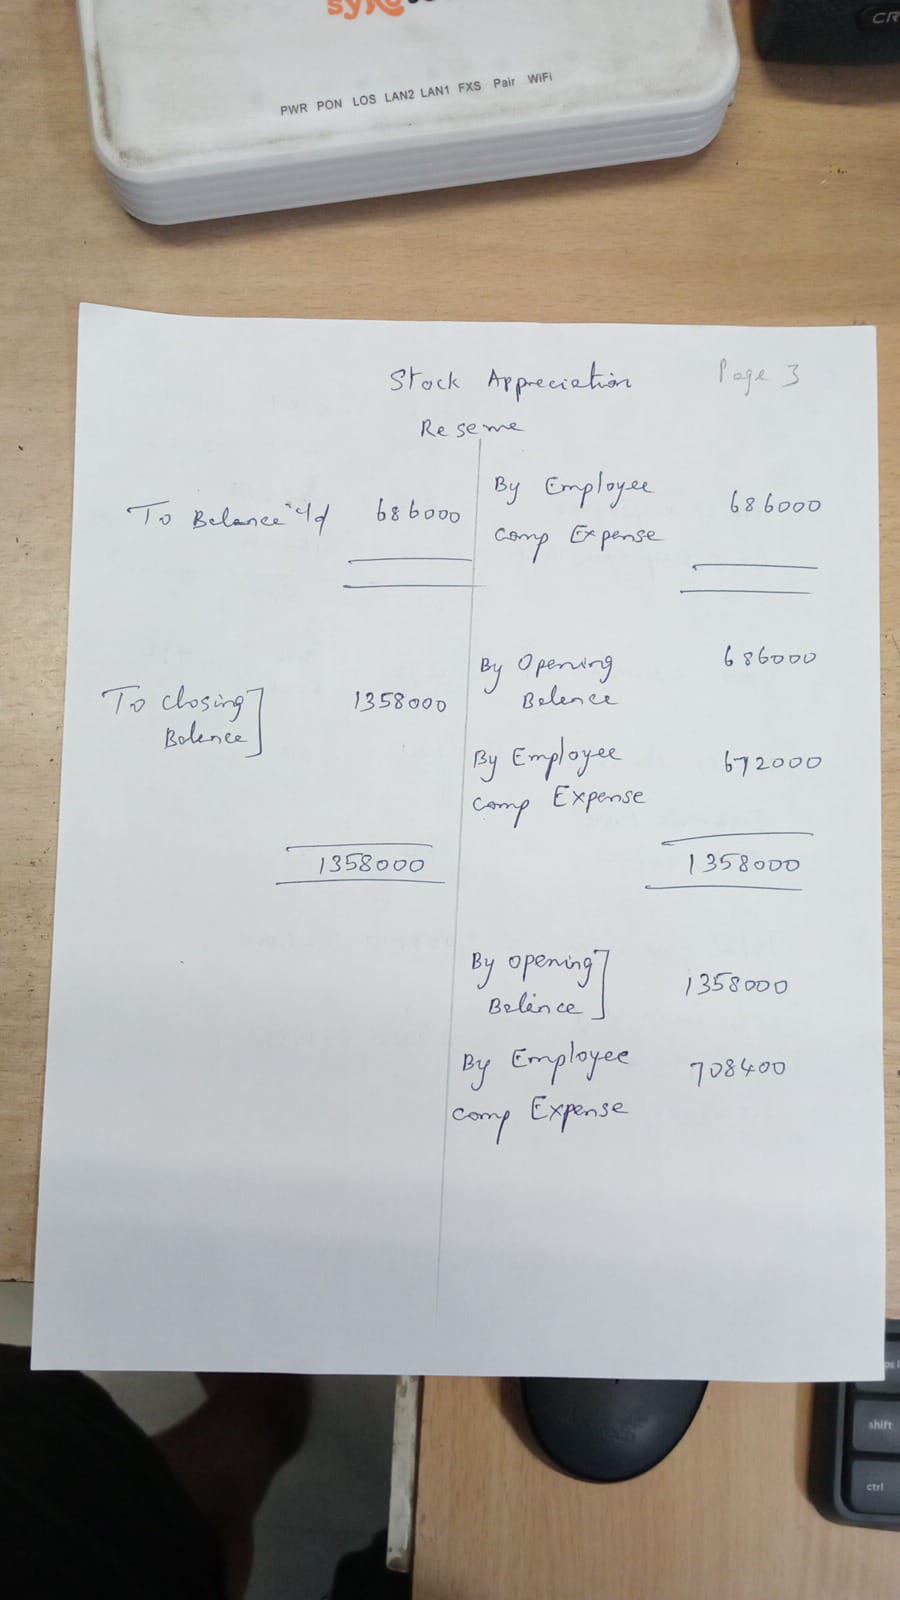 PWR PON LOS LAN2 LAN1 FXS Pair WiFi
CR
Stock Appreciation Page 3
Reserve
To Balance c/d 686000 By Employee 686000
Comp Expense
By Opening 686000
Balance
To Closing 1358000
Balance
By Employee 672000
Comp Expense
1358000 1358000
By Opening 1358000
Balance
By Employee 708400
Comp Expense
shift
ctrl